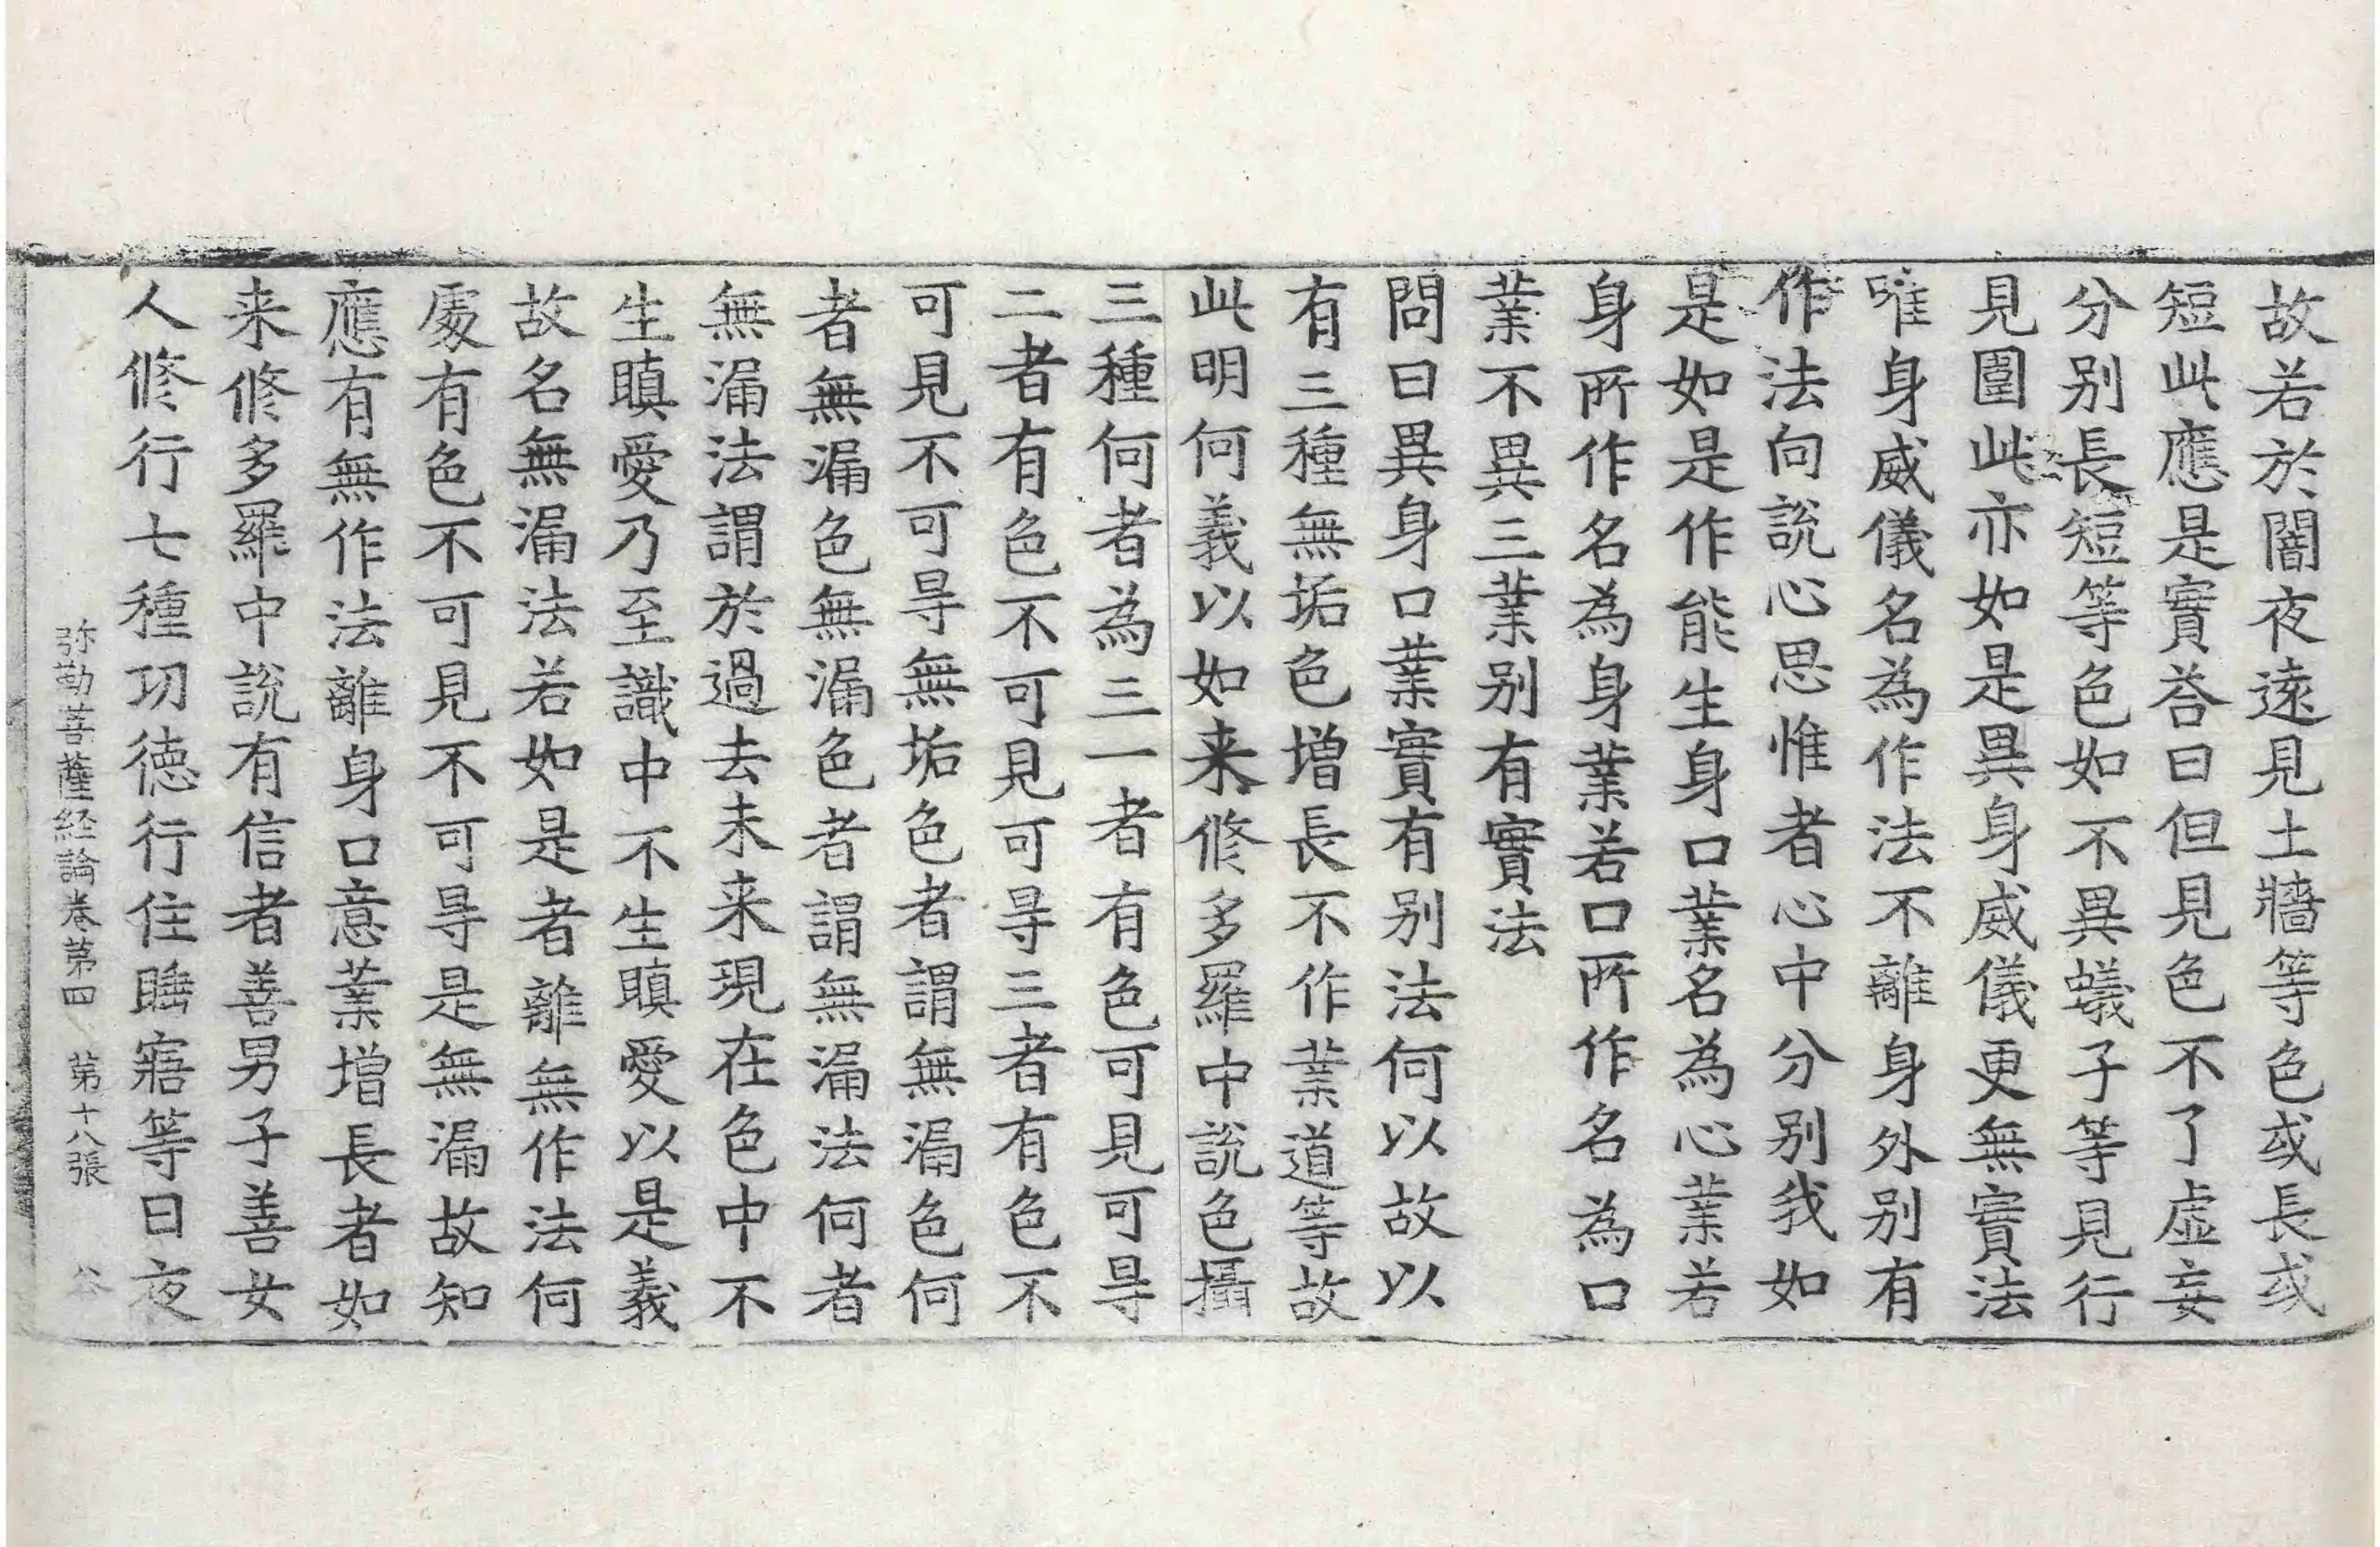 故若於闇夜遠見土牆等色或長或
短此應是實荅曰但見色不了虛妄
分別長短等色如不異蟻子等見行
見圍此亦如是異身威儀更無實法
唯身威儀名為作法不離身外別有
作法向說心思惟者心中分別我如
是如是作能生身口業名為心業若
身所作名為身業若口所作名為口
業不異三業別有實法
問曰異身口業實有別法何以故以
有三種無垢色增長不作業道等故
此明何義以如来修多羅中說色攝
三種何者為三一者有色可見可㝵
二者有色不可見可㝵三者有色不
可見不可㝵無垢色者謂無漏色何
者無漏色無漏色者謂無漏法何者
無漏法謂於過去未来現在色中不
生瞋愛乃至識中不生瞋愛以是義
故名無漏法若如是者離無作法何
處有色不可見不可㝵是無漏故知
應有無作法離身口意業增長者如
来修多羅中說有信者善男子善女
人修行七種功德行住睡寤等日夜
弥勒菩薩経論卷第四　第十八張